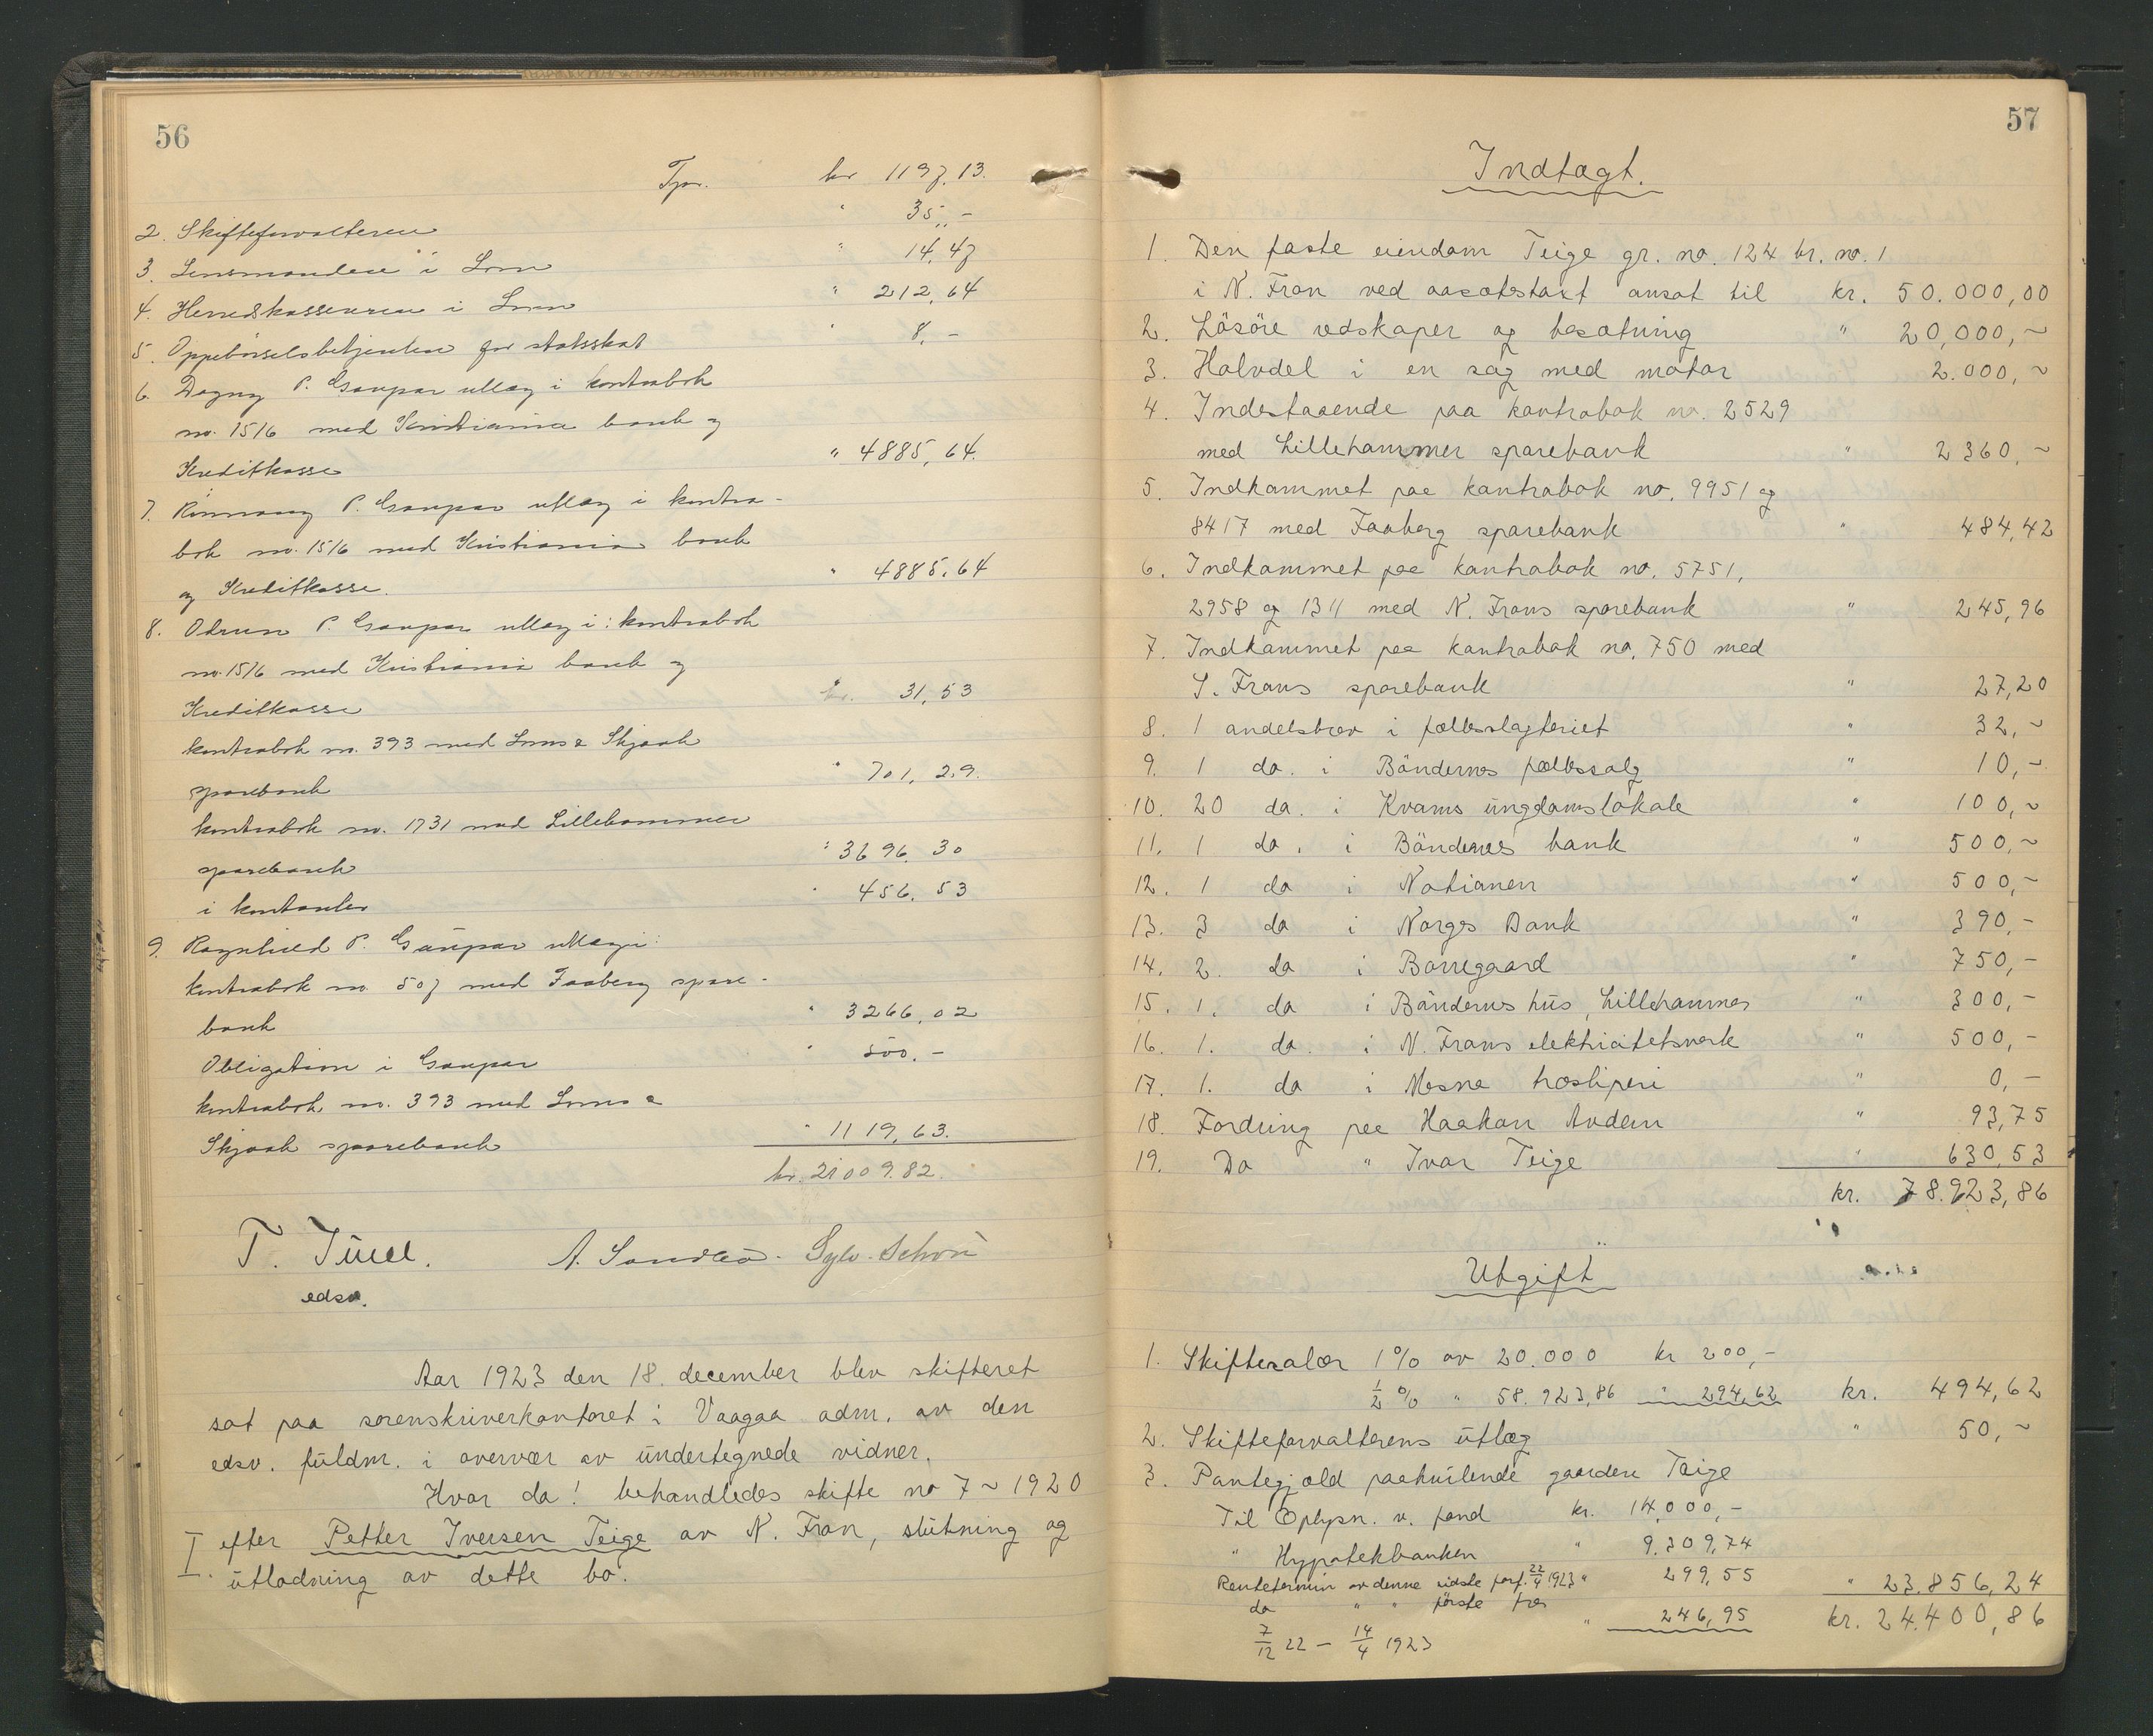 56
Tpr. kr 1197.13.
2. Skifteforvalteren " 35,-
3. Lensmanden i Lom " 14,47
4. Herredskassereren i Lom " 212,64
5. Oppebörselsbetjenten for statsskat " 8,-
6. Dagny P. Gaupar utlæg i kontrabok
no. 1516 med Kristiania bank og
Kreditkasse " 4885,64.
7. Rönnaug P. Gaupar utlæg i kontra-
bok no. 1516 med Kristiania bank
og Kreditkasse. " 4885,64
8. Odrun P. Gaupar utlæg i: kontrabok
no. 1516 med Kristiania bank og
Kreditkasse kr. 31,53
kontrabok no. 393 med Loms & Skjaak
sparebank " 701,29.
kontrabok no. 1731 med Lillehammer
sparebank " 3696,30
i kontanter " 456,53
9. Ragnhild P. Gaupar utlæg i:
kontrabok no. 507 med Faaberg spare-
bank " 3266,02
Obligation i Gaupar " 500.-
kontrabok no. 393 med Loms &
Skjaak sparebank " 1119,63.
kr. 21009.82.
T. Juell. A. Sandbo. Sylv. Schou
edsv.
Aar 1923 den 18. december blev skifteret
sat paa sorenskriverkontoret i Vaagaa adm. av den
edsv. fuldm. i overvær av undertegnede vidner.
Hvor da! behandledes skifte no 7 ~ 1920
I. efter Petter Iversen Teige av N. Fron, slutning og
utlodning av dette bo.
57
Indtægt.
1. Den faste eiendom Teige gr. no. 124 br. no. 1
i N. Fron ved aasætestakt ansat til kr. 50.000,00
2. Lösöre redskaper og besætning " 20,000,~
3. Halvdel i en sag med motor 2.000,~
4. Indestaaende paa kontrabok no. 2529
med Lillehammer sparebank " 2360,~
5. Indkommet paa kontrabok no. 9951 og
8417 med Faaberg sparebank " 484,42
6. Indkommet paa kontrabok no. 5751,
2958 og 1311 med N. Frons sparebank " 245,96
7. Indkommet paa kontrabok no. 750 med
S. Frons sparebank " 27,20
8. 1 andelsbrev i fællesslagteriet " 32,~
9. 1 do. i Bändernes fællessalg " 10,~
10. 20 do. i Kvams ungdomslokale " 100,~
11. 1 do. i Böndernes bank " 500,~
12. 1 do i Nationen " 500,-
13. 3 do i Norges Bank " 390,-
14. 2. do i Borregaard " 750,-
15. 1. do i Böndernes hus, Lillehammer " 300,-
16. 1. do. i N. Frons elektricitetsverk " 500,-
17. 1. do i Mesna træsliperi " 0,-
18. Fordring paa Haakon Andem " 93,75
19. Do " Ivar Teige " 630,53
kr. 78.923,86
Utgift
1. Skiftesalær 1% av 20.000 kr 200,-
½ % " 58.923,86 " 294,62 kr. 494,62
2. Skifteforvalterens utlæg " 50,~
3. Pantegjæld paahvilende gaarden Teige
Til Oplysn. v. fond kr. 14,000,-
" Hypotekbanken " 9.309,74
Rentetermin av denne sidste forf. 22/4 1923 " 299,55 " 23.856,24
do " " förste fra " 246,95 kr. 24.400,86
7/12 22 – 14/4 1923